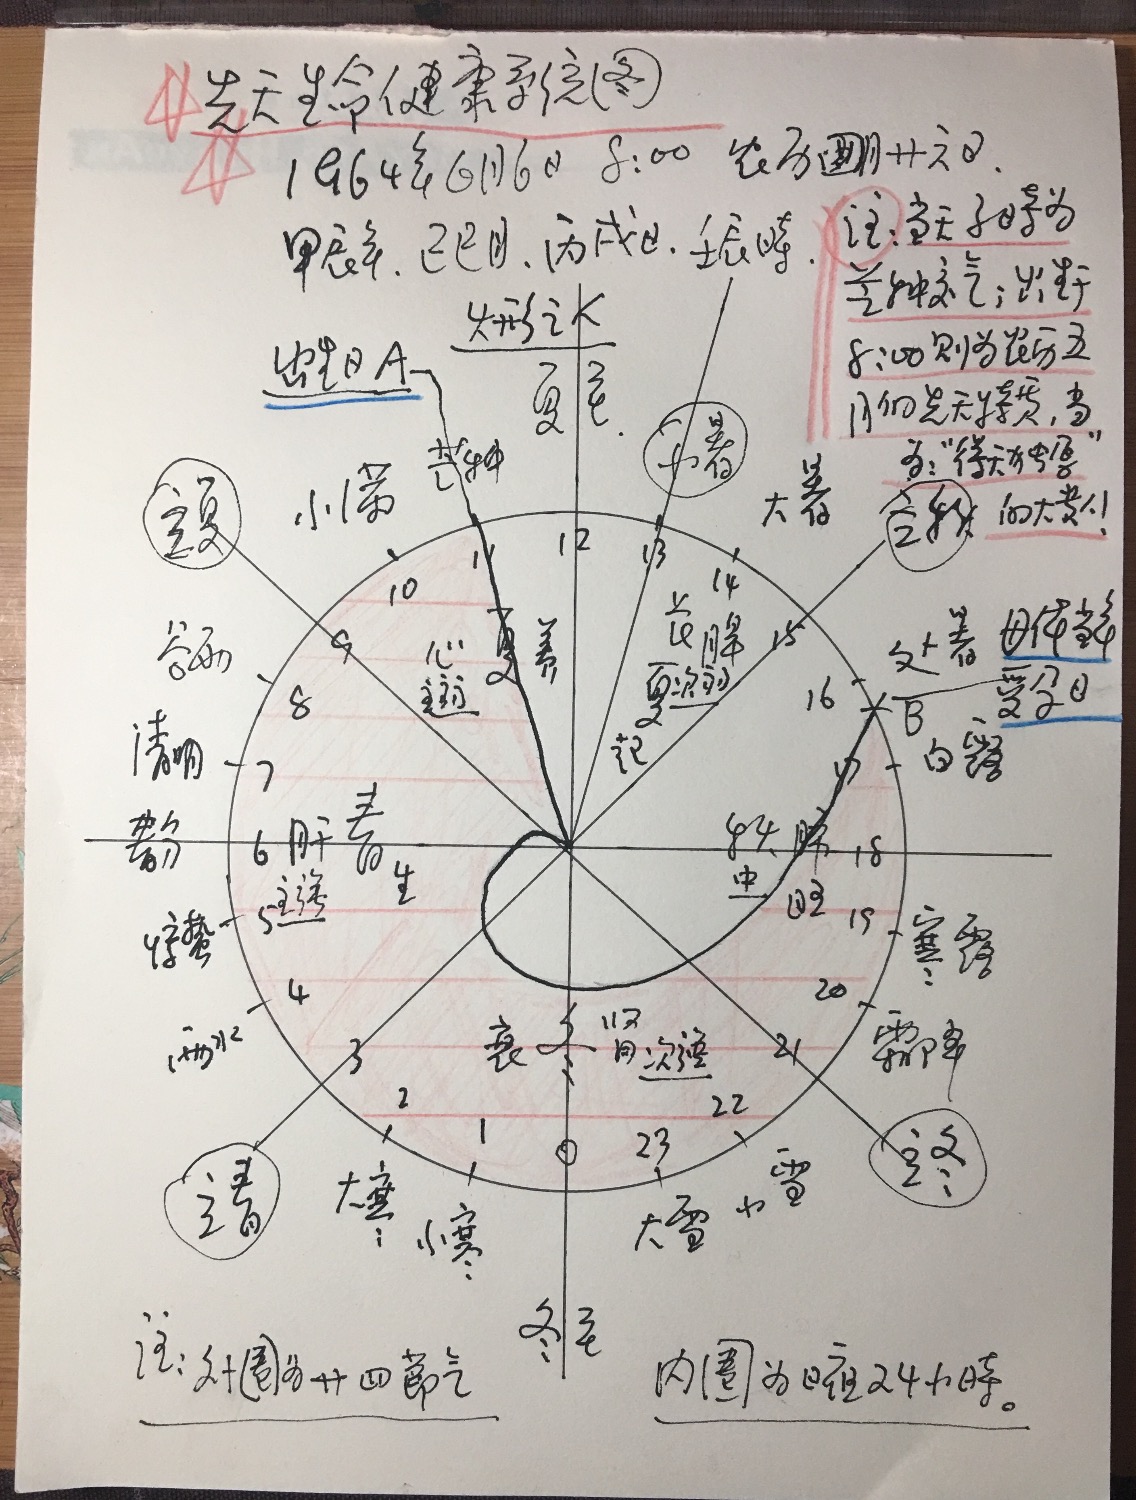 先天生命健康系统(图)
1964年6月6日 8:00 农历四月廿六日.
甲辰年.己巳月.丙戌日.壬辰時.
注:当天子時为
芒种交气;出生于
8:00则为农历五
月的先天特质,当
为:“得天独厚”
的大贵人!
出生日A
火形之人
夏至.
芒种
小暑
小满
大暑
立夏
立秋
12
11
13
10
14
9
15
谷雨
8
心
主弱
夏
养
花
脾
夏
次弱
16
处暑
B
母体当年
受孕日
白露
清明
7
17
春分
6
肝
主强
春
生
秋
申
肺
旺
18
惊蛰
5
19
寒露
雨水
4
20
霜降
衰
冬
肾
次强
3
21
2
22
1
0
23
立春
大寒
小寒
大雪
小雪
立冬
冬至
注:外圈为廿四節气
内圈为日夜24小時。